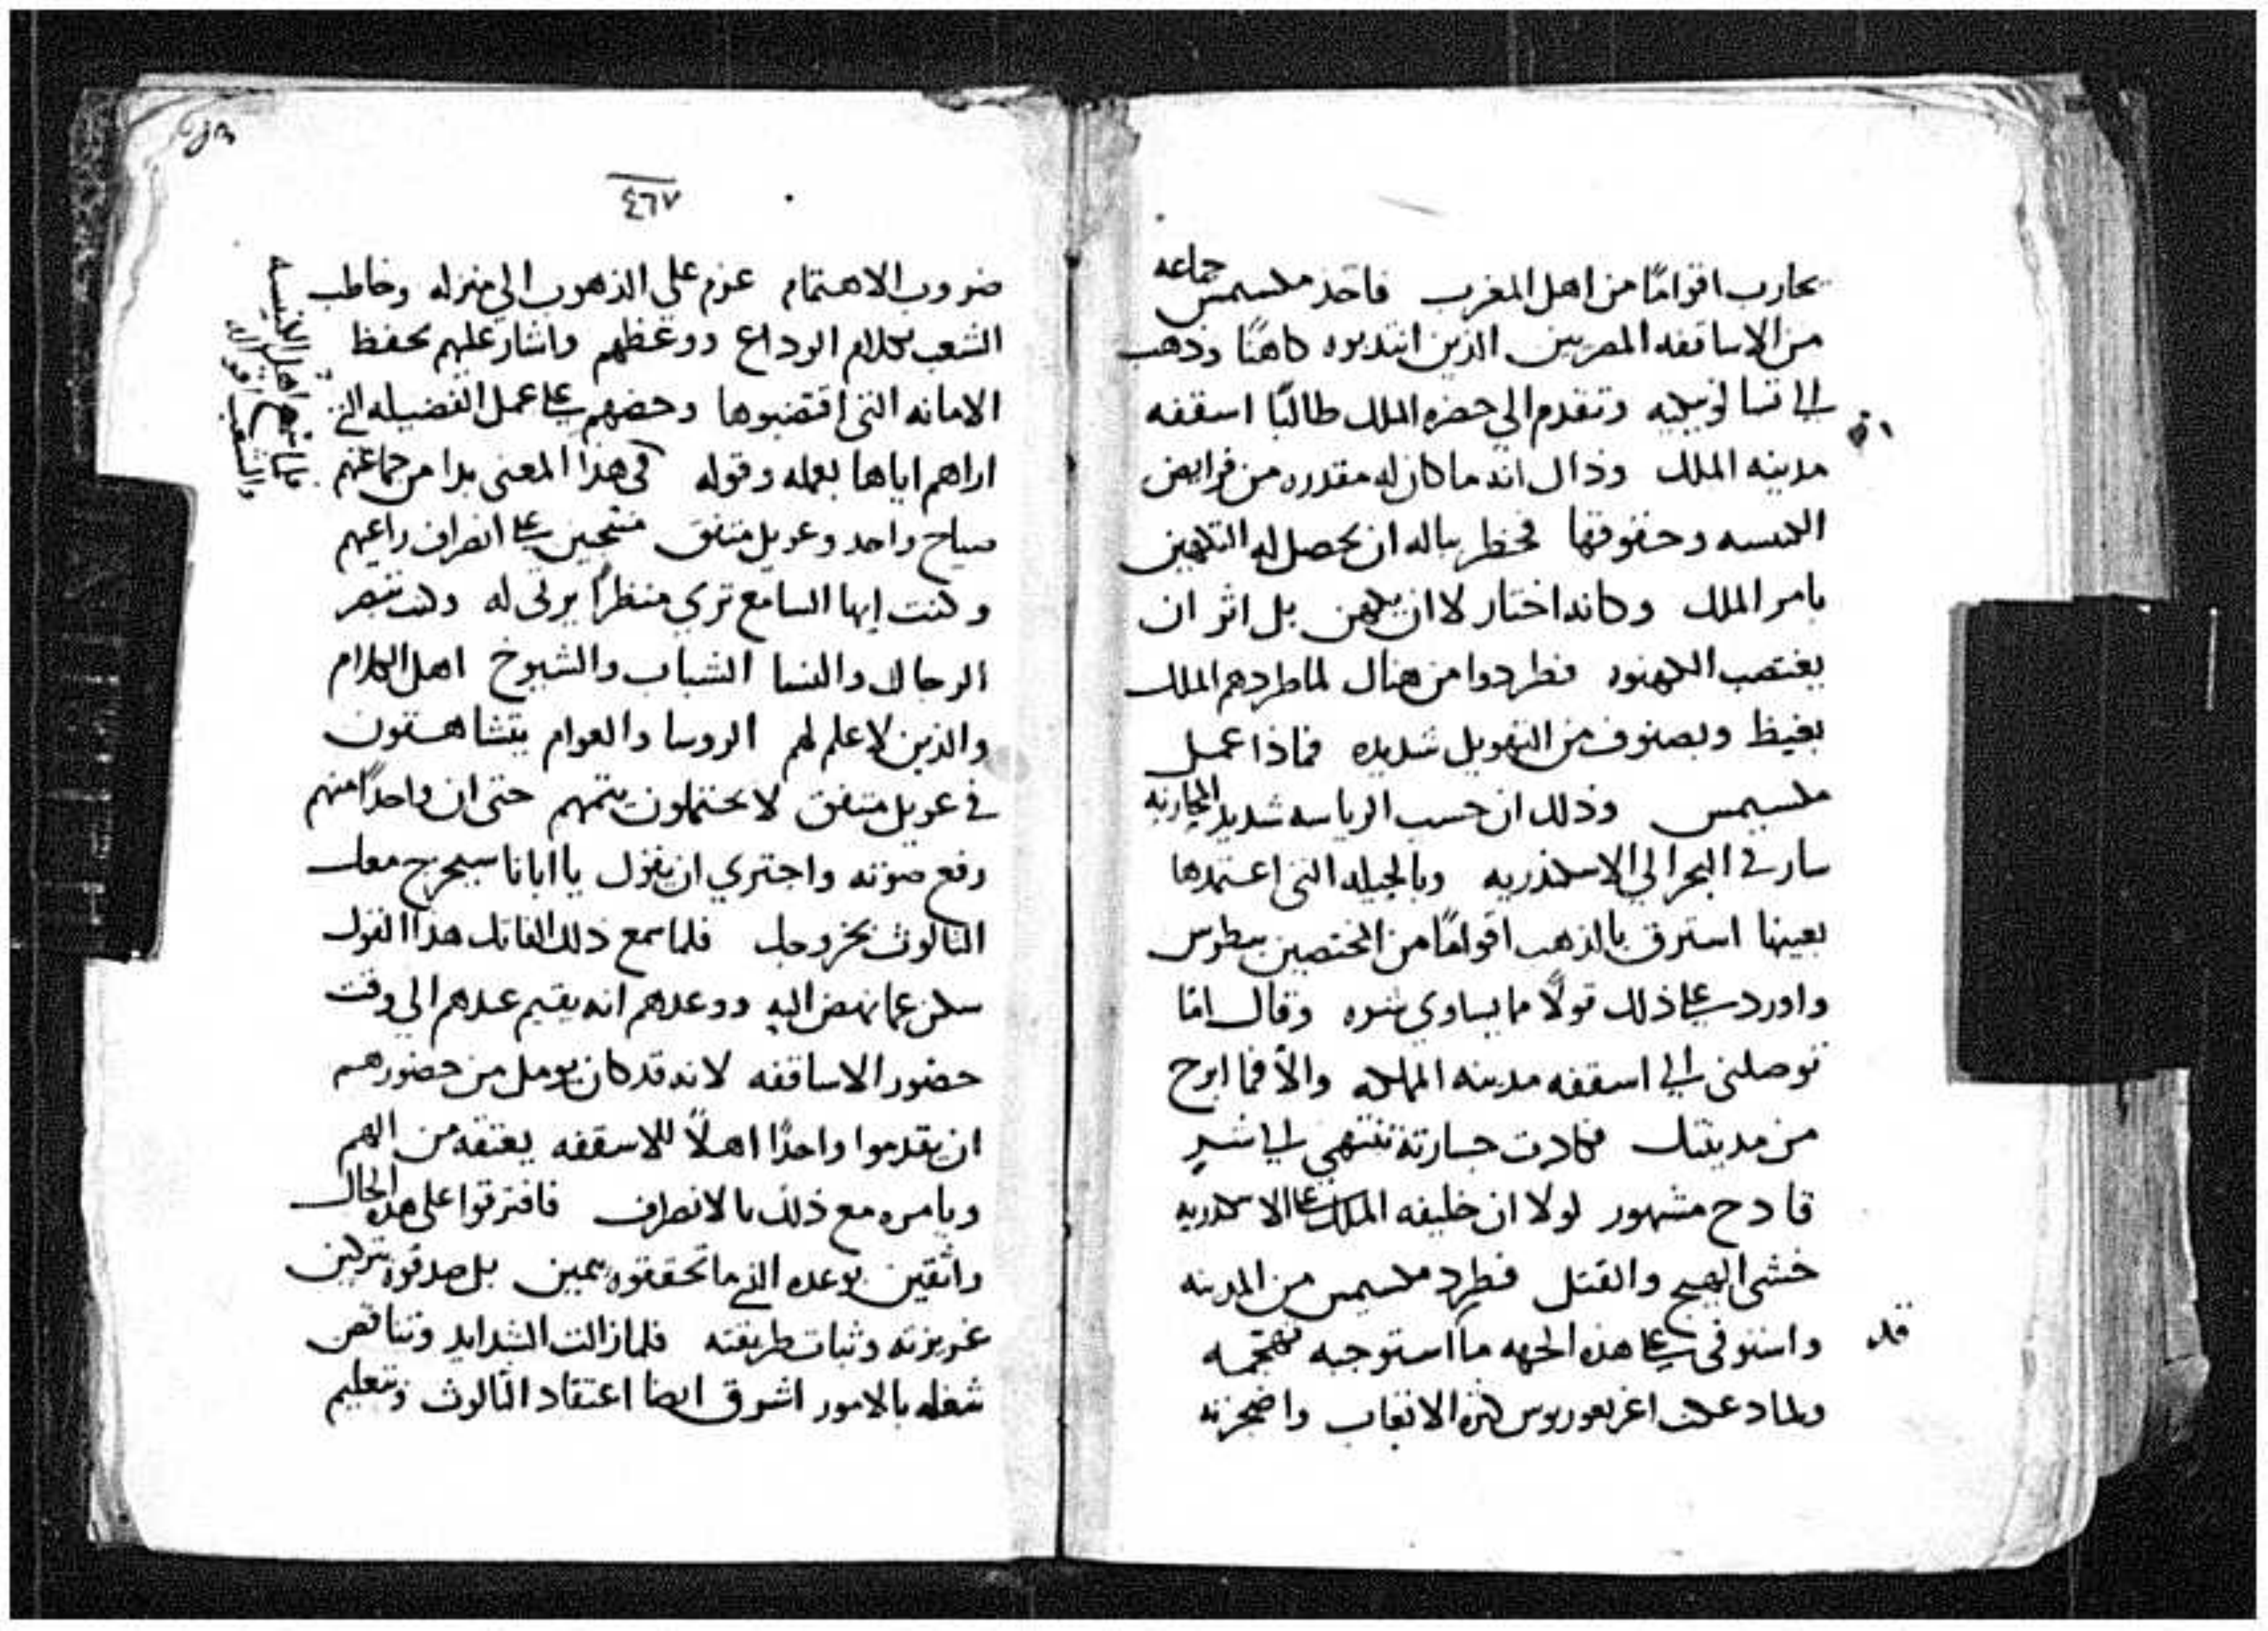 يحارب اقوامًا من اهل المغرب فاخذ مكسيمس جماعه
من الاساقفه المصريين الذين انتدبوه كاهنًا وذهب
الى تسالونيكيه وتقدم الي حضره الملك طالبًا اسقفه
مدينه الملك وذاك انه ما كان له مقدره من فرايض
الكنيسه وحقوقها فخطر بباله ان يحصل له التكهين
بامر الملك وكانه اختار لا ان يكهن بل اثر ان
يغتصب الكهنوه فطردوا من هناك لما طردهم الملك
بغيظ وبصنوف من التهويل شديده فماذا عمل
مكسيمس وذلك ان حسب الرياسه شديد المحاربه
سار في البحر الي الاسكندريه وبالحيله التي اعتمدها
بعينها استرق بالذهب اقوامًا من المختصين ببطرس
واورد على ذلك قولًا ما يساوي شره وقال اما
توصلني الى اسقفه مدينه المملكه والا فما ابرح
من مدينتك فكادت جسارته تنتهي الى شرٍ
قادح مشهور لولا ان خليفه الملك على الاسكندريه
خشي الهيج والقتل فطرد مكسيمس من المدينه
واستوفى على هذه الجهه ما استوجبه تهجمه
ولما دعكت اغريغوريوس كثره الاتعاب واضجرته
قد
٤٦٧
ضروب الاهتمام عزم علي الذهوب الي منزله وخاطب
الشعب بكلام الوداع ووعظهم واشار عليهم بحفظ
الامانه التي اقتضبوها وحضهم على عمل الفضيله التي
اراهم اياها بعمله وقوله في هذا المعنى بدا من جماعتهم
صياح واحد وعويل متفق منتحبين على انصراف راعيهم
وكنت ايها السامع تري منظرًا يرثى له وكنت تبصر
الرجال والنسا الشباب والشيوخ اهل الكلام
والذين لا علم لهم الروسا والعوام يتشاهقون
في عويل متفق لا يحتملون يتمهم حتى ان واحدًا منهم
رفع صوته واجتري ان يقول يا ابانا سيخرج معك
الثالوث بخروجك فلما سمع ذلك الفاتك هذا القول
سكن عما نهض اليه ووعدهم انه يقيم عندهم الي وقت
حضور الاساقفه لانه قد كان يومل من حضورهم
ان يقدموا واحدًا اهلًا للاسقفه يعتقه من الهم
ويامره مع ذلك بالانصراف فافترقوا على هذه الحال
واثقين بوعده الذي ما تحققوه بيمين بل صدقوه بتركين
غريزته وثبات طريقته فلما زالت الشدايد وتناقص
شغله بالامور اشرق ايضا اعتقاد الثالوث وتعليم